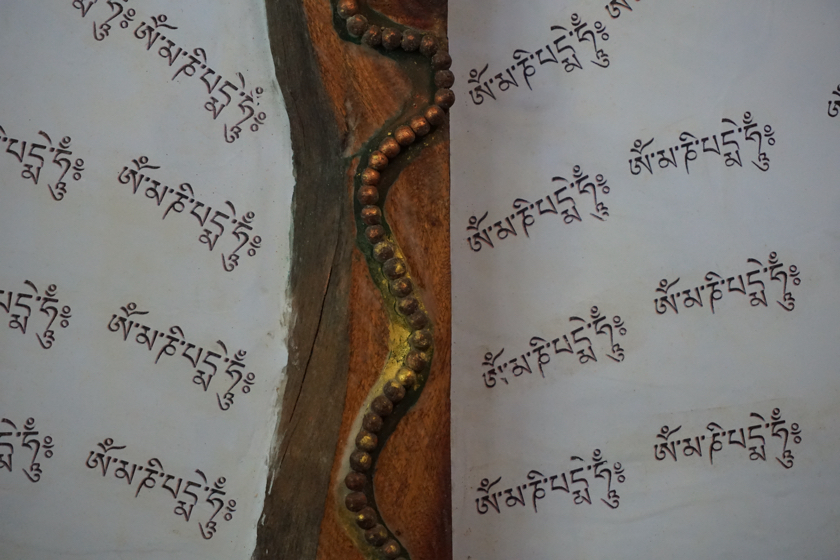 ཨོཾ་མ་ཎི་པདྨེ་ཧཱུྃ༔
པདྨེ་ཧཱུྃ༔ ཨོཾ་མ་ཎི་པདྨེ་ཧཱུྃ༔
པདྨེ་ཧཱུྃ༔ ཨོཾ་མ་ཎི་པདྨེ་ཧཱུྃ༔
ཧཱུྃ༔ ཨོཾ་མ་ཎི་པདྨེ་ཧཱུྃ༔
ཨོཾ་མ་ཎི་པདྨེ་ཧཱུྃ༔
ཨོཾ་མ་ཎི་པདྨེ་ཧཱུྃ༔ ཨོཾ་མ་ཎི་པདྨེ་ཧཱུྃ༔
ཨོཾ་མ་ཎི་པདྨེ་ཧཱུྃ༔ ཨོཾ་མ་ཎི་པདྨེ་ཧཱུྃ༔
ཨོཾ་མ་ཎི་པདྨེ་ཧཱུྃ༔ ཨོཾ་མ་ཎི་པདྨེ་ཧཱུྃ༔